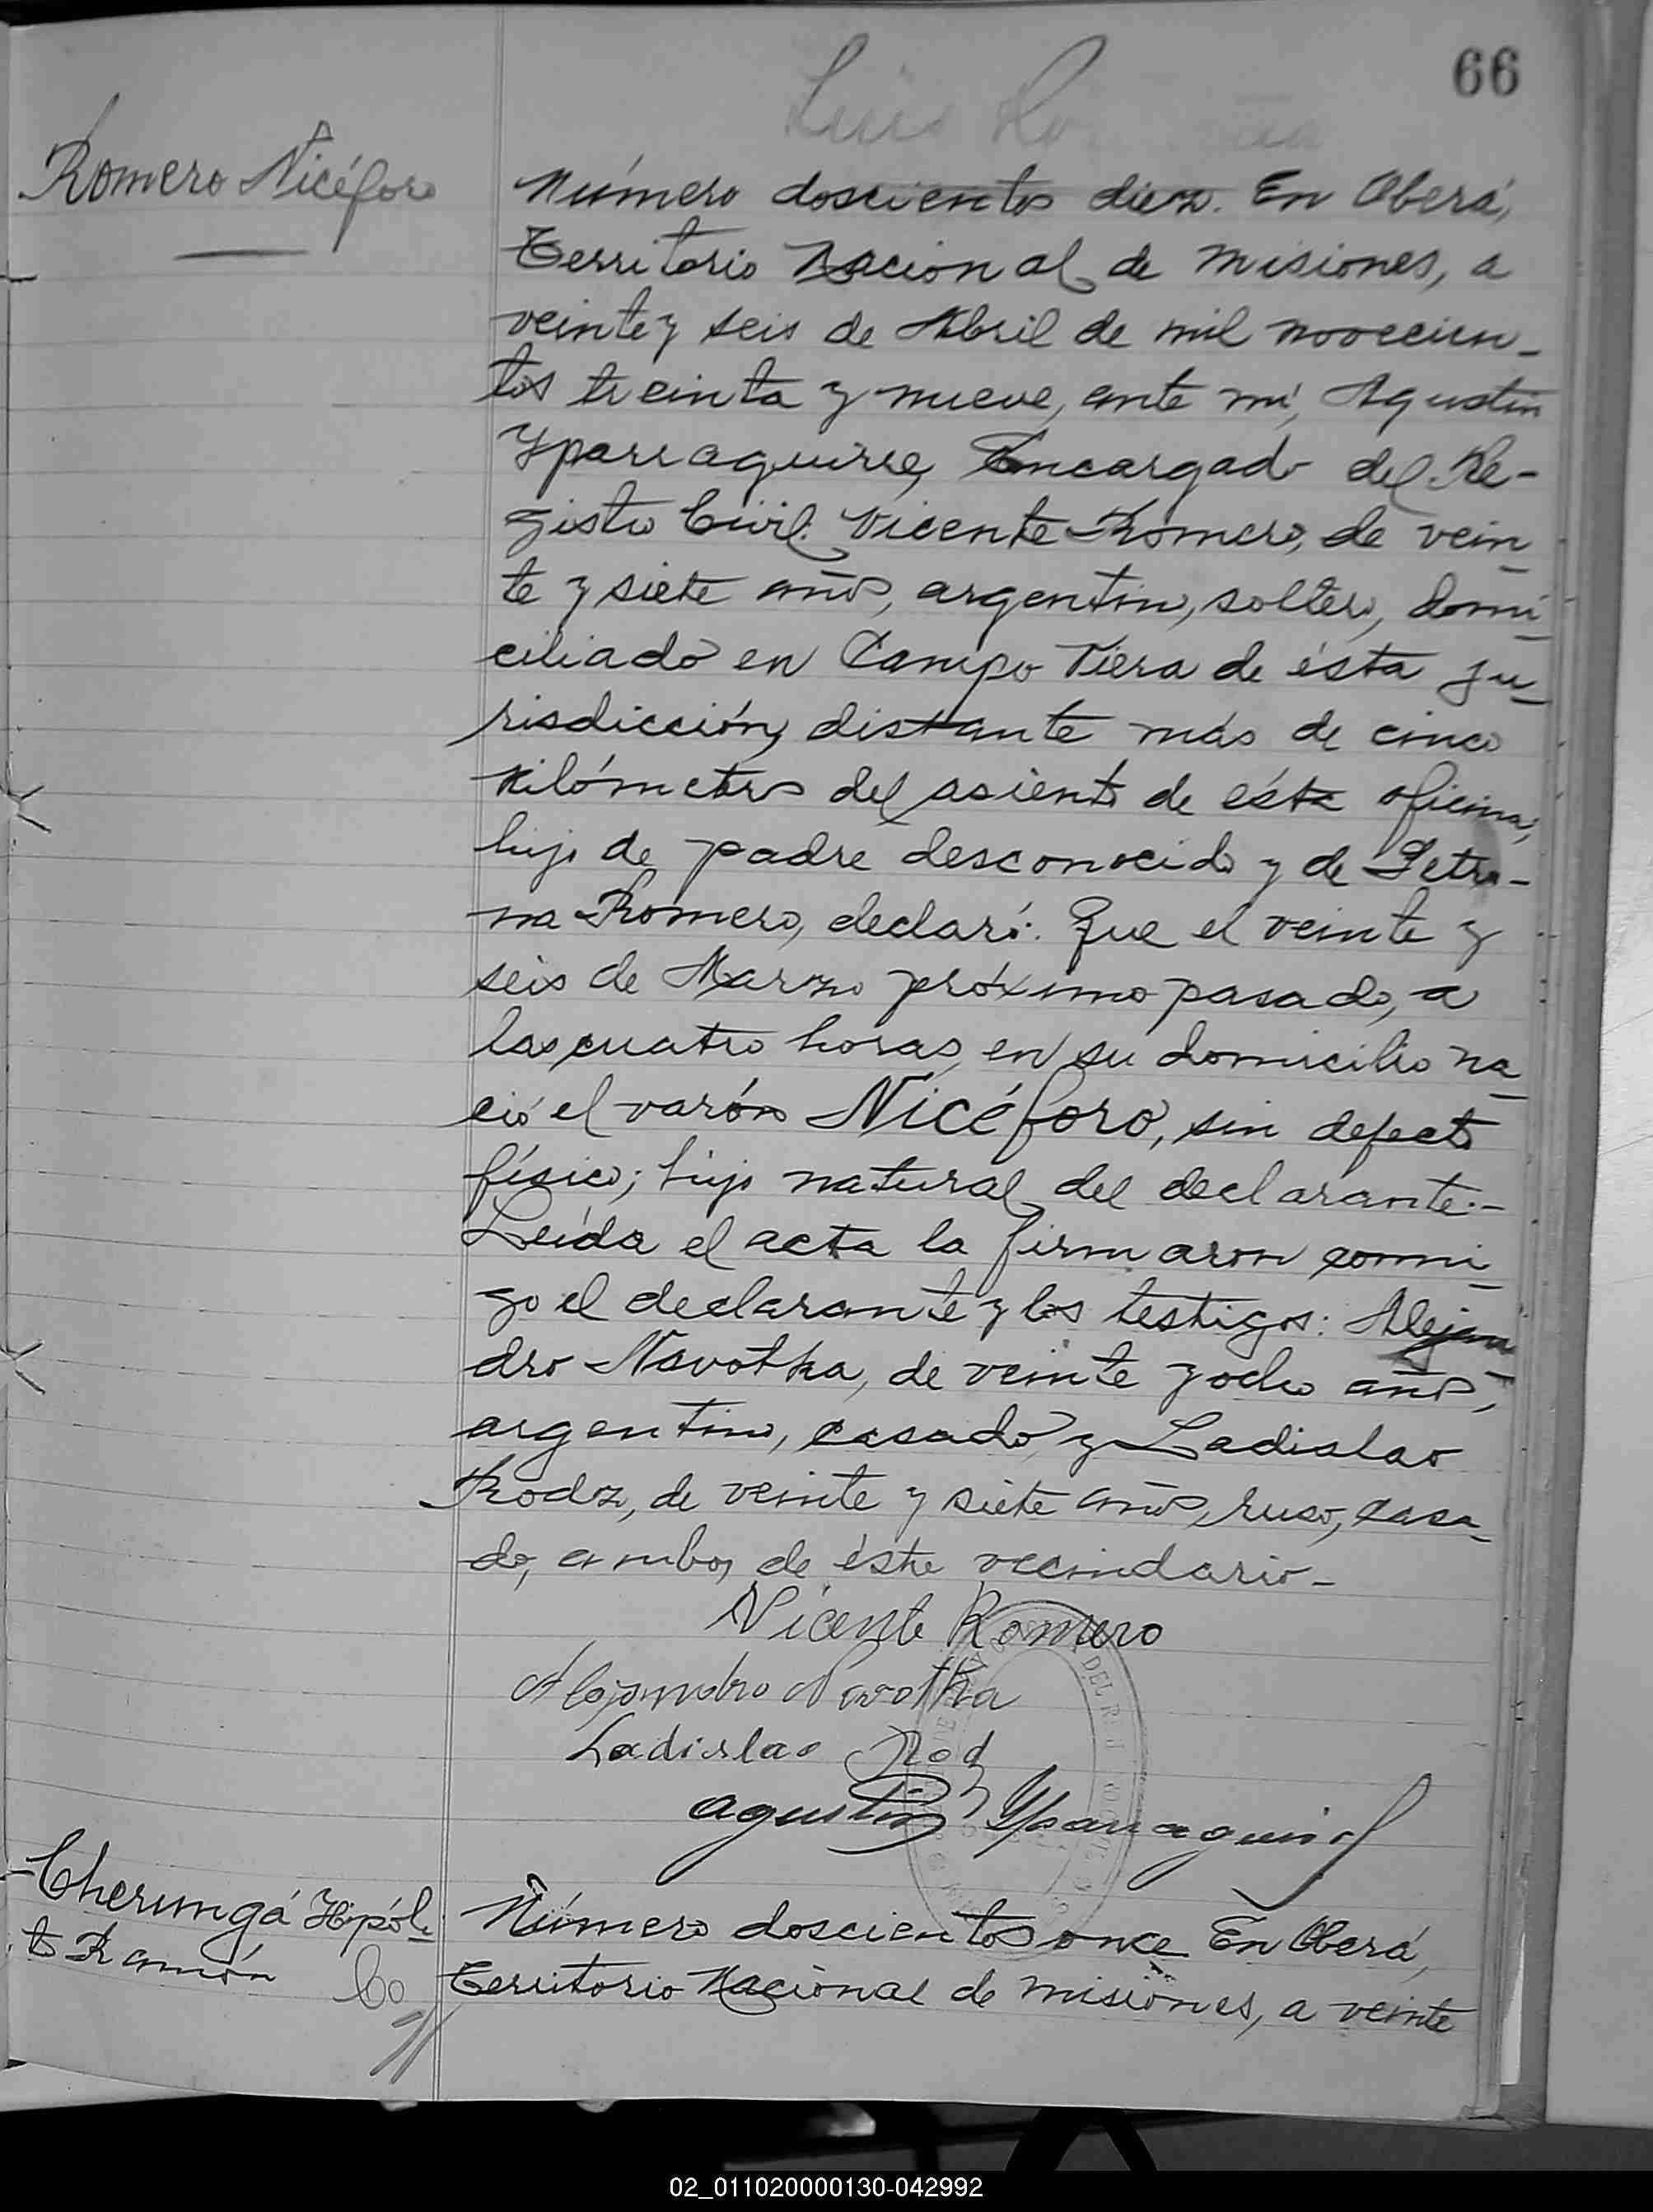 66
Luis
Romero Nicéforo
Número doscientos diez. En Oberá,
Territorio Nacional de Misiones, a
veinte y seis de Abril de mil novecien-
tos treinta y nueve, ante mí, Agustín
Yparraguirre, Encargado del Re-
gistro Civil: Vicente Romero, de vein
te y siete años, argentino, soltero, domi
ciliado en Campo Viera de ésta ju
risdicción, distante más de cinco
kilómetros del asiento de ésta oficina,
hijo de padre desconocido y de Petro-
na Romero, declaró: Que el veinte y
seis de Marzo próximo pasado, a
las cuatro horas, en su domicilio na
ció el varón Nicéforo, sin defecto
físico; hijo natural del declarante.-
Leída el acta la firmaron conmi
go el declarante y los testigos: Alejan
dro Navothka, de veinte y ocho años,
argentino, casado y Ladislao
Rodz, de veinte y siete años, ruso, casa
do, ambos de éste vecindario-
Vicente Romero
Alejandro Navothka
Ladislao Rodz
Agustín Yparraguirre
Cherungá Hipóli
to Ramón
Número doscientos once En Oberá,
Territorio Nacional de Misiones, a veinte
02_011020000130-042992